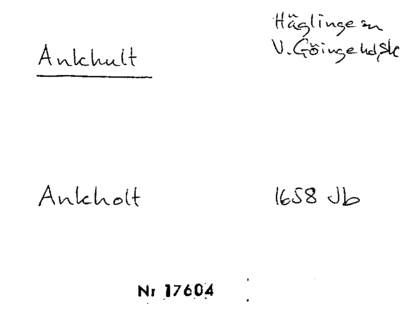 Häglinge sn
Ankhult V. Göinge hd, Sk
Ankholt 1658 Jb
Nr 17604